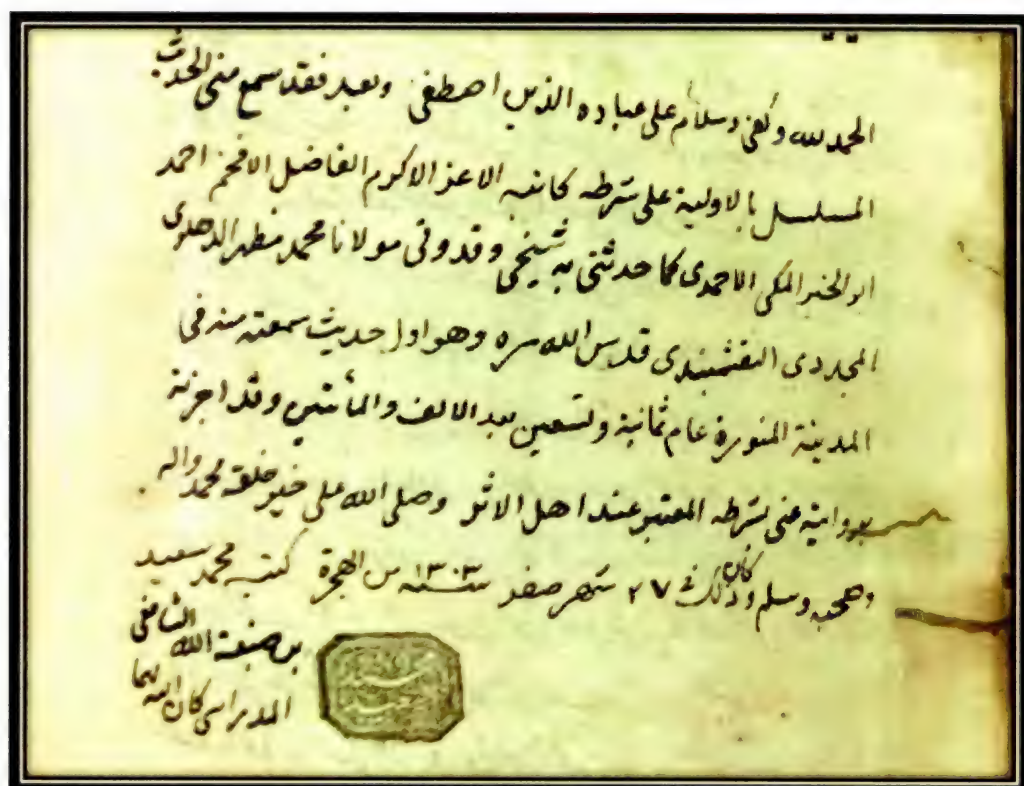 الحمد لله وكفى وسلام على عباده الذين اصطفى وبعد فقد سمع منى الحديث
المسلسل بالاولية على شرطه كاتبه الاعز الاكرم الفاضل الافخم احمد
ابو الخير المكى الاحمدى كما حدثنى به شيخى وقدوتى مولانا محمد مظهر الدهلوى
المجددى النقشبندى قدس الله سره وهو اول حديث سمعته منه فى
المدينة المنورة عام ثمانية وتسعين بعد الالف والمأتين وقد اجزته
بروايته عنى بشرطه المعتبر عند اهل الاثر وصلى الله على خير خلقه محمد واله
وصحبه وسلم وكان ذلك فى ٢٧ شهر صفر سنه ١٣٠٣ من الهجرة كتبه محمد سعيد
بن صبغة الله الشافعى
المدراسى كان الله لهما